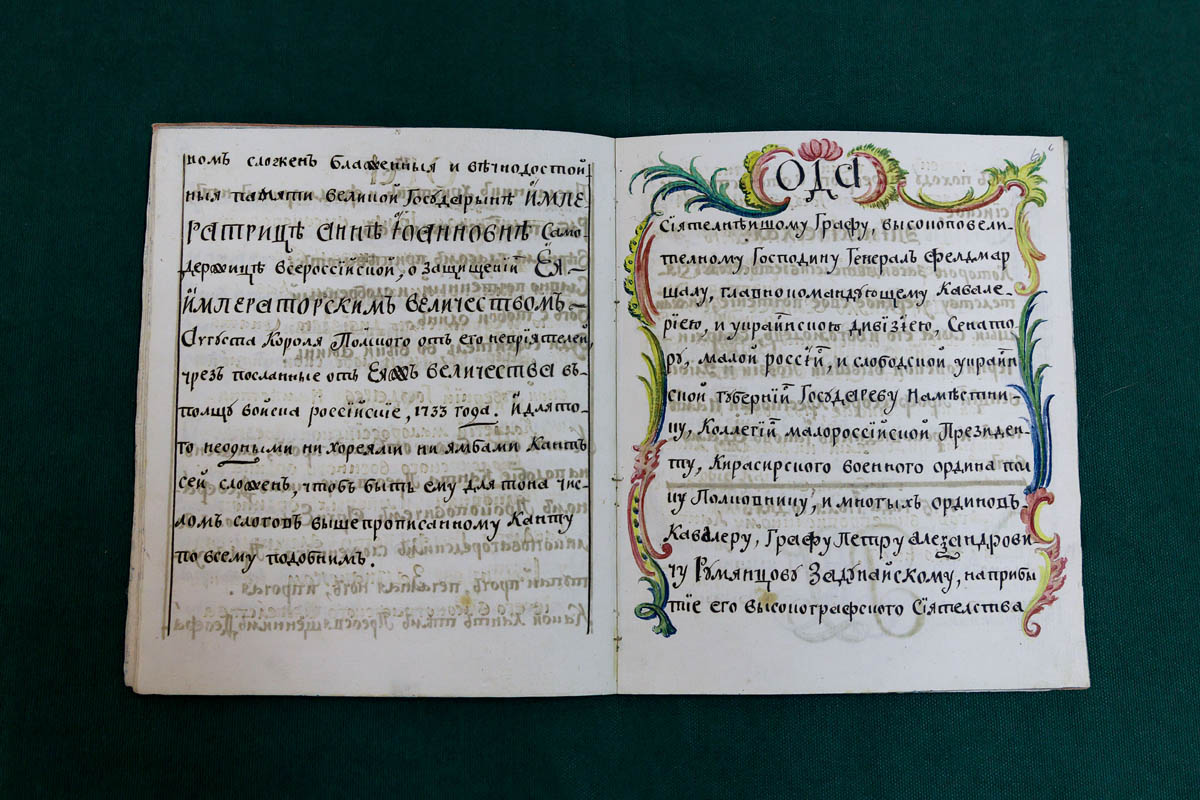 номъ сложенъ блаженныя и вѣчнодостой
ныя памяти великой Государынѣ ИМПЕ
РАТРИЦѢ АННѢ ІОАННОВНѢ Само
держицѣ всероссійской, о защищеніи ЕЯ
ИМПЕРАТОРСКИМЪ ВЕЛИЧЕСТВОМЪ
Августа Короля Полского отъ его непріятелей,
чрезъ посланные отъ ЕЯжъ ВЕЛИЧЕСТВА въ
полщу войска россійскіе, 1733 года. И для то
го неодными ни хореями ни ямбами Кантъ
сей сложен, чтобъ быть ему для тона чис
ломъ слоговъ вышепрописанному Канту
по всему подобнимъ.
ОДА
Сіятелнѣйшому Графу, высокоповели
телному Господину Генералъ фелдмар
шалу, главнокомандующему Кавале
ріею, и украинскою дивізіею, Сенато
ру, малой россіи, и слободской украин
ской губерніи Государеву Намѣстни
ку, Коллегіи малороссійской Президен
ту, Кирасирского военного ордина пол
ку Полковнику, и многыхъ ординовъ
Кавалеру, Графу Петру Александрови
чу Румянцову Задунайскому, на прибы
тіе его высокографского Сіятелства